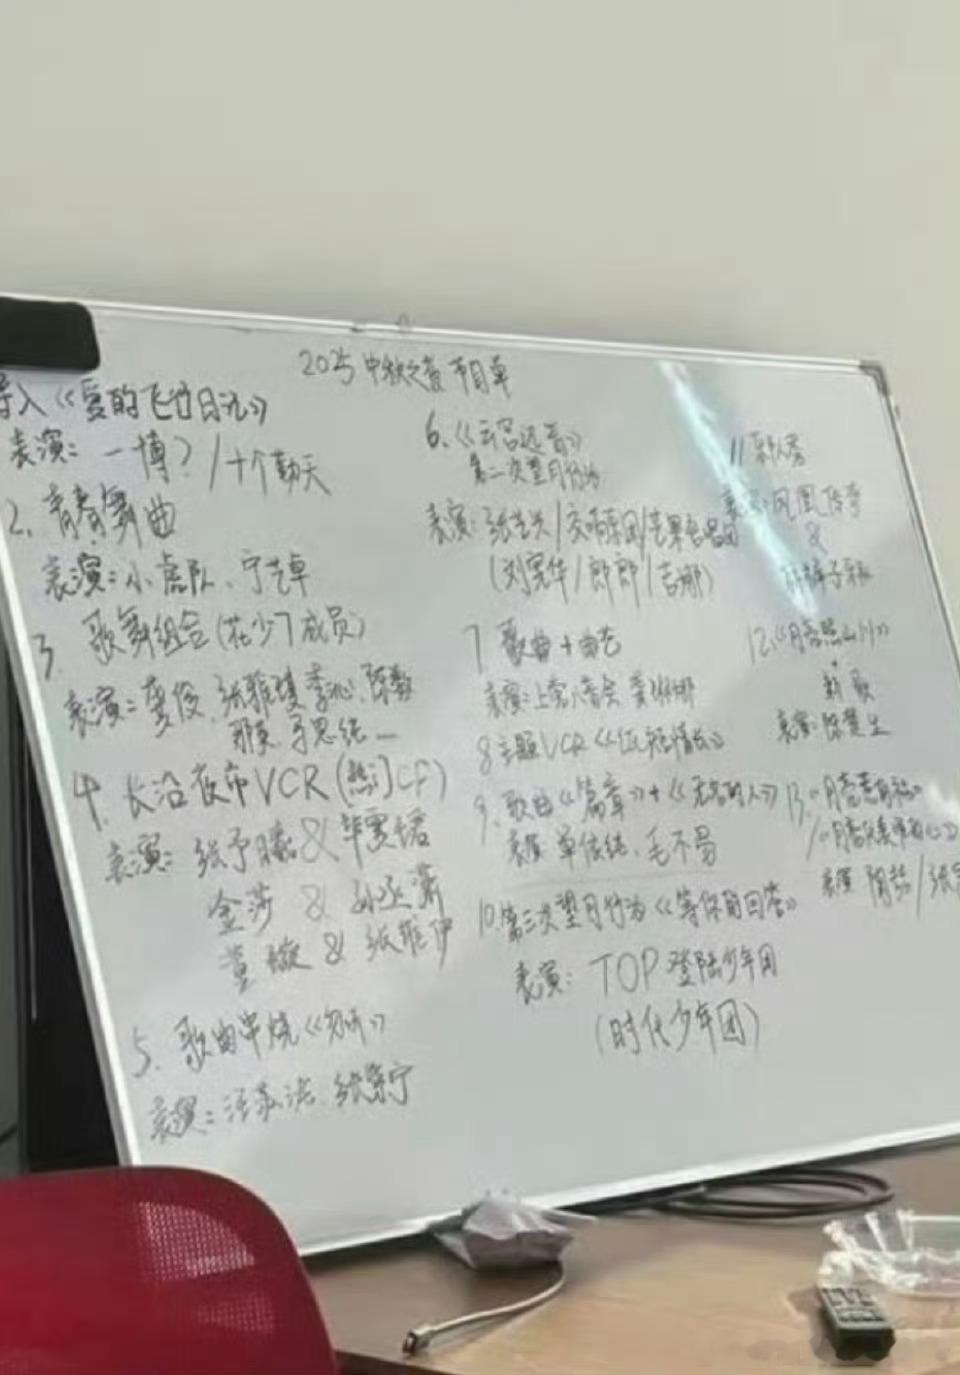 2025中秋之夜 节目单
导入《爱的飞行日记》
表演：一博？/十个勤天
2. 青春舞曲
表演：小虎队、宁艺卓
3. 歌舞组合（花少7成员）
表演：龚俊、张雅琪 李沁、陈数
那英、马思纯...
4. 长沿夜市VCR（热门CP）
表演：张予曦&
金莎 & 孙丞潇
董璇 & 张维伊
5. 歌曲串烧《》
表演：汪苏泷、张紫宁
6.《云宫迅音》
第二次望月行为
表演：张艺兴/交响乐团/苹果合唱团
（刘宪华/郎郎/吉娜）
7 歌曲+曲艺
表演：上官 龚琳娜
8 主题VCR《》
9. 歌曲《篇章》+《无名的人》
表演 单依纯、毛不易
10. 第三次望月行为《等你的回答》
表演：TOP登陆少年团
（时代少年团）
11
表演：凤凰传奇
&
12.《月亮照山川》
新歌
表演：陈楚生
13.
表演 陶喆/张